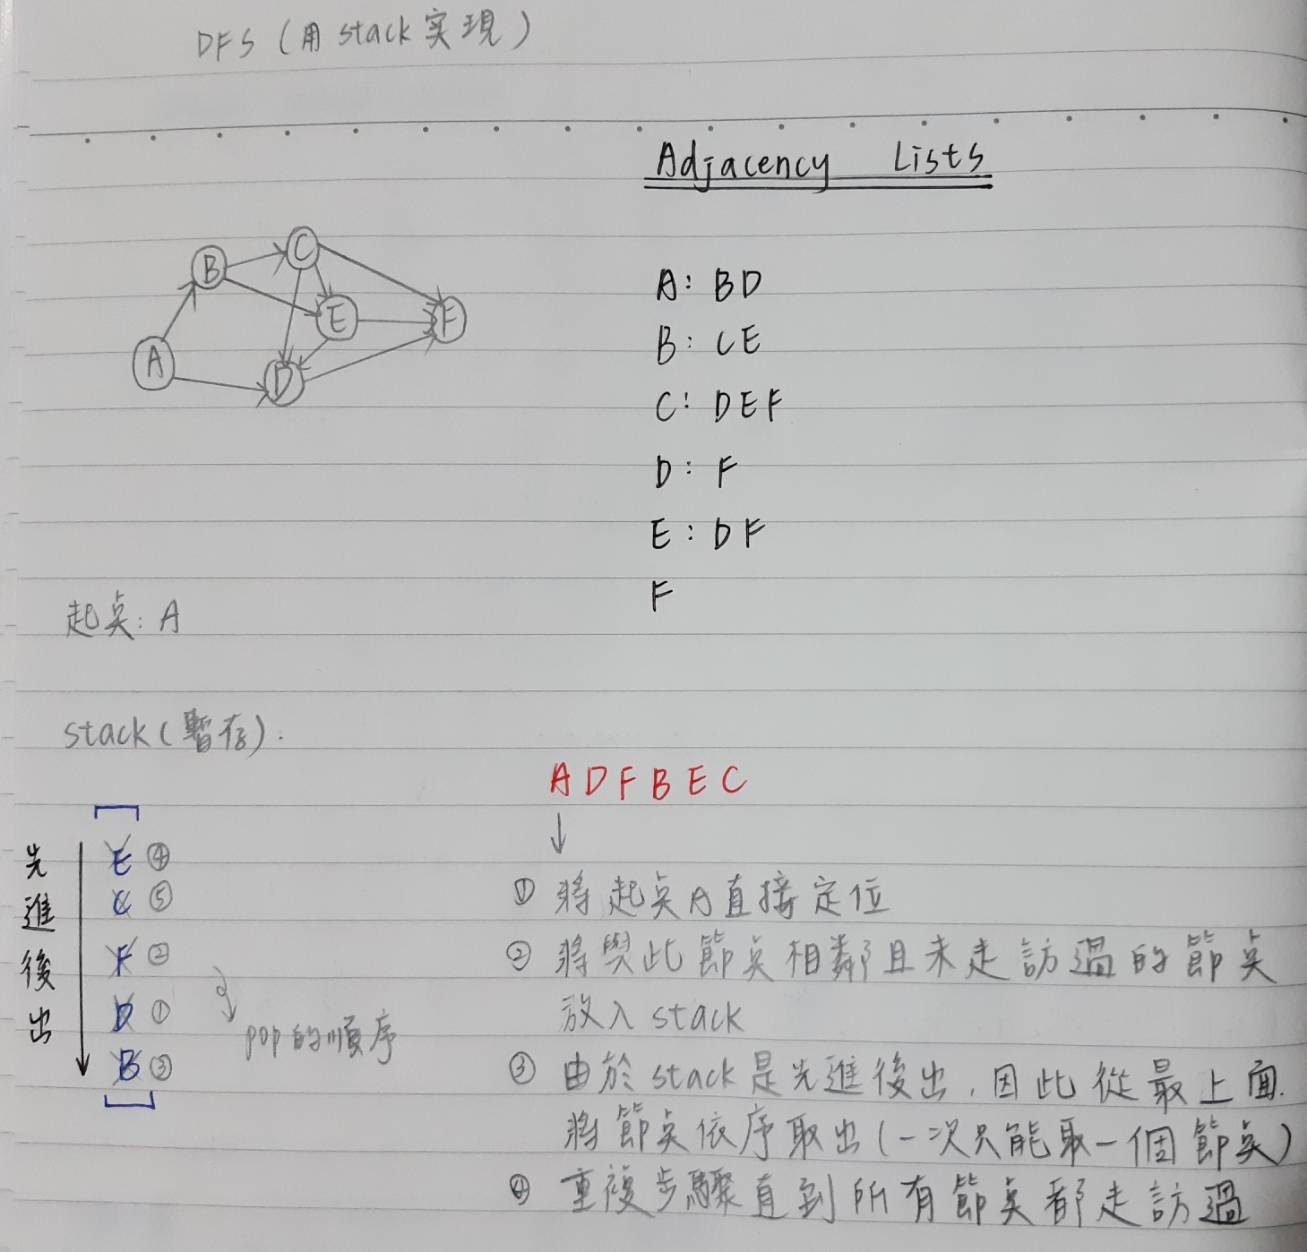 DFS (用 stack 実現)
Adjacency Lists
C
B
E
F
A
D
A: BD
B: CE
C: DEF
D: F
E: DF
F
起点: A
stack (暫存):
A D F B E C
先進後出
E ④
C ⑤
F ②
D ①
B ③
pop的順序
① 將起点A直接定位
② 將與此節点相鄰且未走訪過的節点
放入 stack
③ 由於 stack 是先進後出, 因此從最上面.
將節点依序取出 (一次只能取一個節点)
④ 重複步驟直到所有節点都走訪過